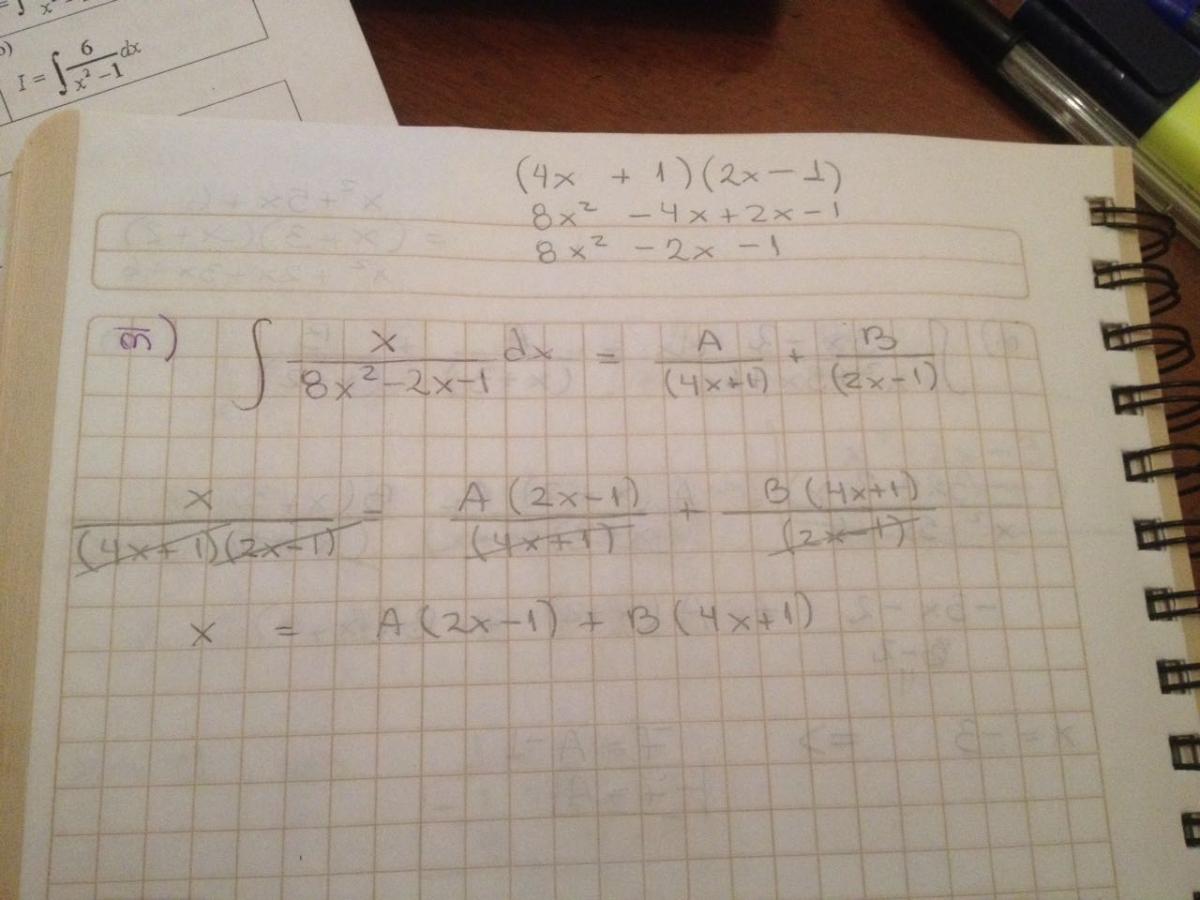 I = ∫ 6/(x² − 1) dx
(4x + 1)(2x − 1)
8x² − 4x + 2x − 1
8x² − 2x − 1
g) ∫ x/(8x² − 2x − 1) dx = A/(4x+1) + B/(2x−1)
x/((4x+1)(2x−1)) = A(2x−1)/(4x+1) + B(4x+1)/(2x−1)
x = A(2x−1) + B(4x+1)